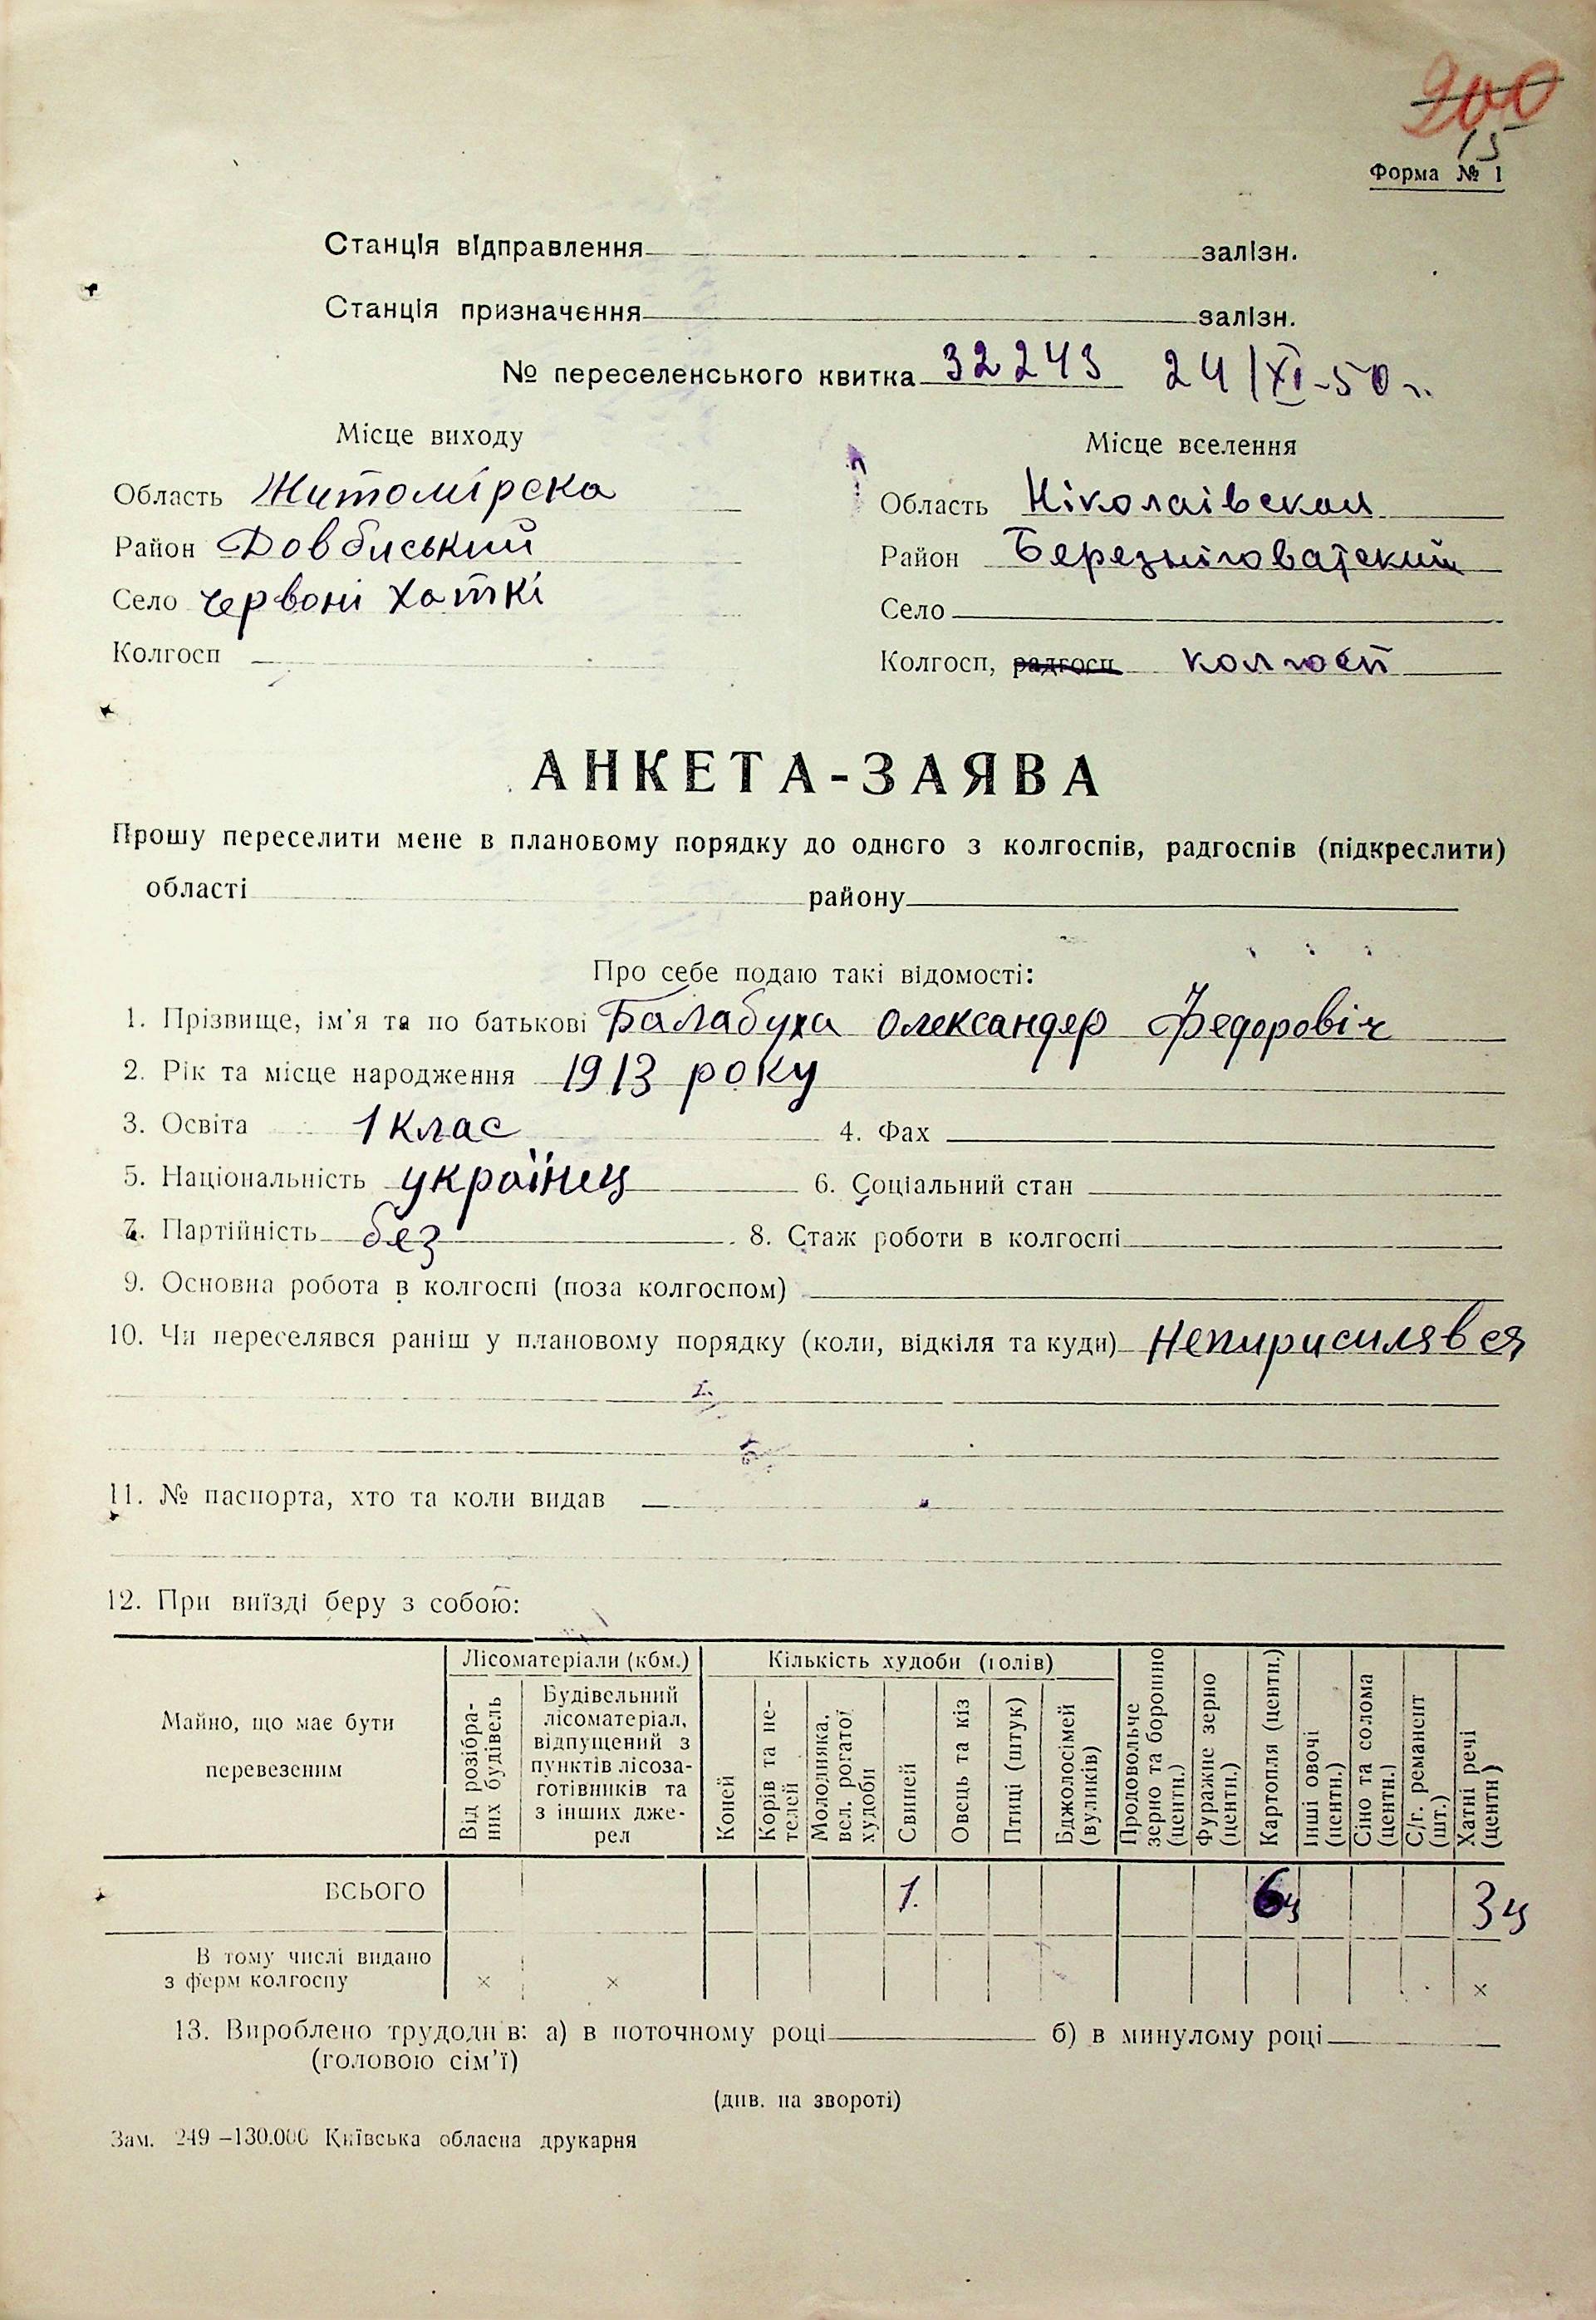 200
15
Форма № 1
Станція відправлення залізн.
Станція призначення залізн.
№ переселенського квитка 32243 24/XI-50 г.
Місце виходу
Область Житомірска
Район Довбиський
Село червоні хаткі
Колгосп
Місце вселення
Область Ніколаівская
Район Березніговатский
Село
Колгосп, радгосп колгосп
АНКЕТА-ЗАЯВА
Прошу переселити мене в плановому порядку до одного з колгоспів, радгоспів (підкреслити)
області району
Про себе подаю такі відомості:
1. Прізвище, ім'я та по батькові Балабуха Олександер Федоровіч
2. Рік та місце народження 1913 року
3. Освіта 1 клас 4. Фах
5. Національність українец 6. Соціальний стан
7. Партійність без 8. Стаж роботи в колгоспі
9. Основна робота в колгоспі (поза колгоспом)
10. Чи переселявся раніш у плановому порядку (коли, відкіля та куди) Непирисилявся
11. № паспорта, хто та коли видав
12. При виїзді беру з собою:
Майно, що має бути
перевезеним
Лісоматеріали (кбм.)
Від розібра-
них будівель
Будівельний
лісоматеріал,
відпущений з
пунктів лісоза-
готівників та
з інших дже-
рел
Кількість худоби (голів)
Коней
Корів та не-
телей
Молодняка,
вел. рогатої
худоби
Свиней
Овець та кіз
Птиці (штук)
Бджолосімей
(вуликів)
Продовольче
зерно та борошно
(центн.)
Фуражне зерно
(центн.)
Картопля (центн.)
Інші овочі
(центн.)
Сіно та солома
(центн.)
С/г. реманент
(шт.)
Хатні речі
(центн)
ВСЬОГО 1. 6ц 3ц
В тому числі видано
з ферм колгоспу × × ×
13. Вироблено трудоднів: а) в поточному році б) в минулому році
(головою сім'ї)
(див. на звороті)
Зам. 249–130.000 Київська обласна друкарня